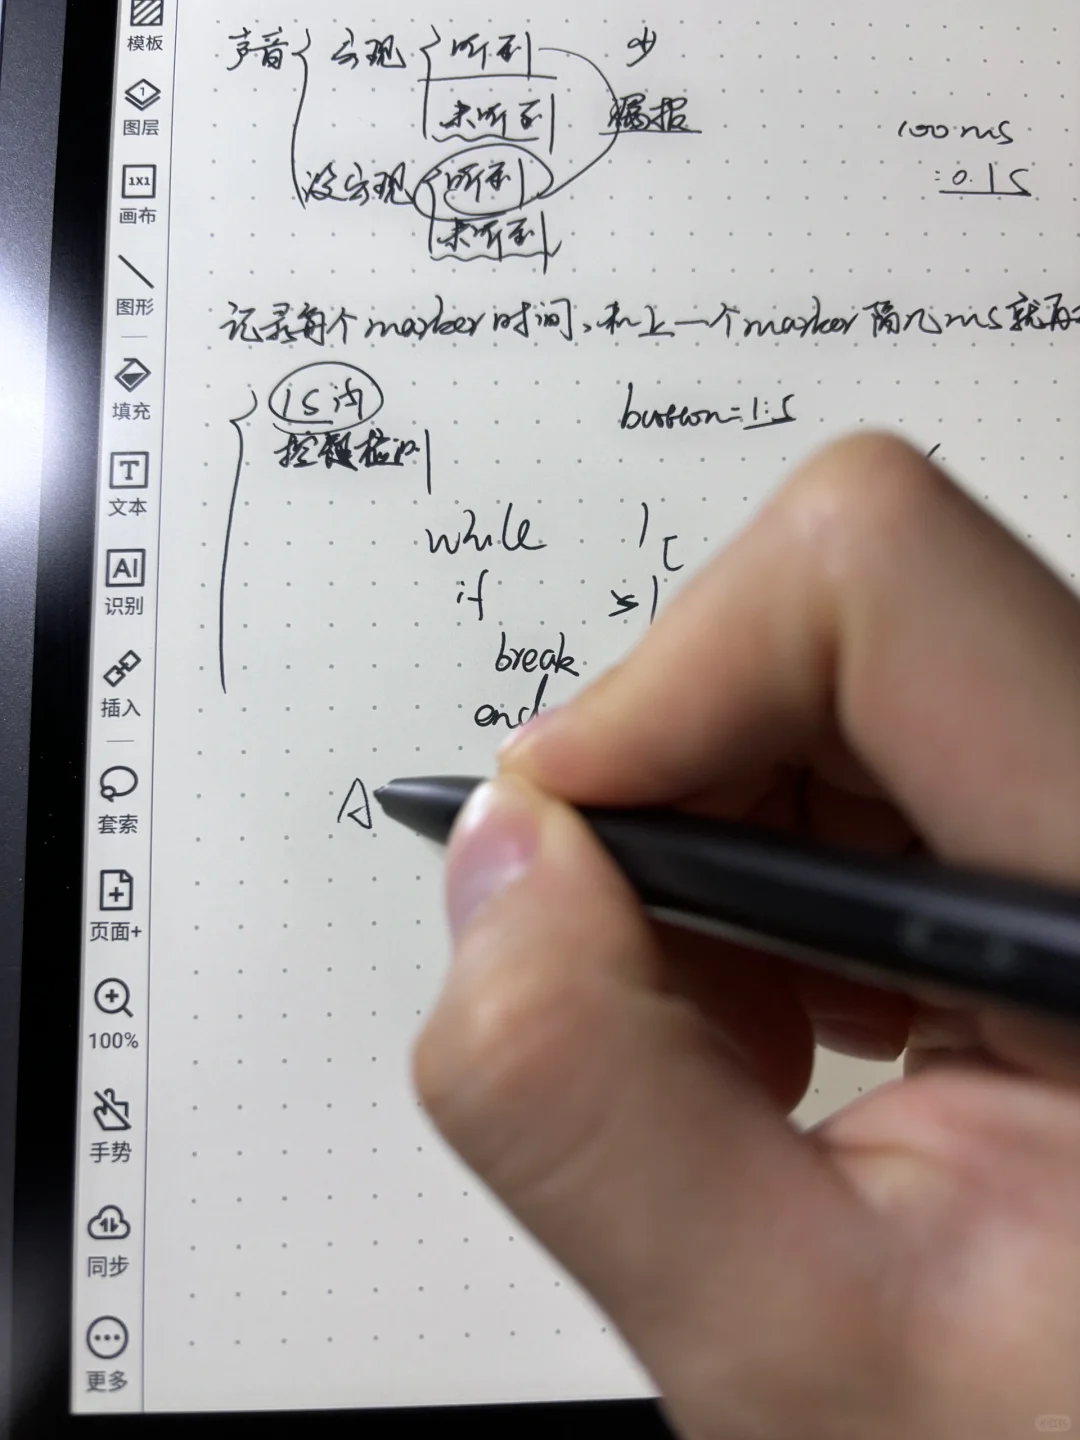 模板
图层
1X1
画布
图形
填充
T
文本
AI
识别
插入
套索
页面+
100%
手势
同步
更多
声音 出现 听到 少
未听到 漏报
没出现 听到
未听到
100ms
0.1s
记录每个marker时间、和上一个marker隔几ms就再
1s内
按键检测
button=1:5
while 1
if
break
end
A